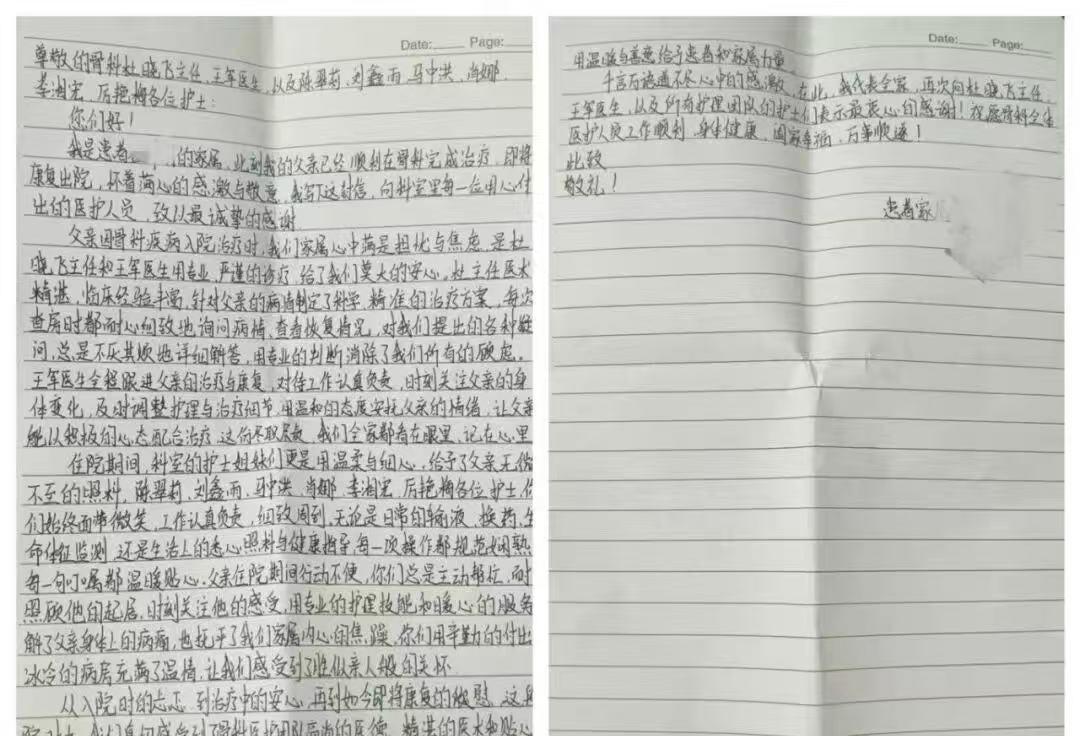 Date: Page:
尊敬的骨科杜晓飞主任、王军医生，以及陈翠莉、刘鑫雨、马中洪、尚娜、
李湘宏、厉艳梅各位护士：
你们好！
我是患者 的家属，此刻我的父亲已经顺利在骨科完成治疗，即将
康复出院，怀着满心的感激与敬意，我写下这封信，向科室里每一位用心付
出的医护人员，致以最诚挚的感谢
父亲因骨科疾病入院治疗时，我们家属心中满是担忧与焦虑，是杜
晓飞主任和王军医生用专业、严谨的诊疗，给了我们莫大的安心。杜主任医术
精湛，临床经验丰富，针对父亲的病情制定了科学、精准的治疗方案，每次
查房时都耐心细致地询问病情、查看恢复情况，对我们提出的各种疑
问，总是不厌其烦地详细解答，用专业的判断消除了我们所有的顾虑。
王军医生全程跟进父亲的治疗与康复，对待工作认真负责，时刻关注父亲的身
体变化，及时调整护理与治疗细节，用温和的态度安抚父亲的情绪，让父亲
能以积极的心态配合治疗，这份 我们全家都看在眼里、记在心里
住院期间，科室的护士姐妹们更是用温柔与细心，给予了父亲无微
不至的照料，陈翠莉、刘鑫雨、马中洪、尚娜、李湘宏、厉艳梅各位护士，你
们始终面带微笑，工作认真负责，细致周到，无论是日常的输液、换药、生
命体征监测，还是生活上的悉心照料与健康指导，每一项操作都规范娴熟
每一句叮嘱都温暖贴心。父亲住院期间行动不便，你们总是主动帮忙，耐
照顾他的起居，时刻关注他的感受，用专业的护理技能和暖心的服务
解了父亲身体上的病痛，也抚平了我们家属内心的焦躁，你们用辛勤的付出
冰冷的病房充满了温情，让我们感受到了胜似亲人般的关怀
从入院时的忐忑，到治疗中的安心，再到如今即将康复的欣慰，这
我们真切感受到了骨科医护团队高尚的医德、精湛的医术和贴心
Date: Page:
用温暖与善意给予患者和家属力量。
千言万语道不尽心中的感激，在此，我代表全家，再次向杜晓飞主任、
王军医生，以及所有护理团队的护士们表示最衷心的感谢！祝愿骨科全体
医护人员工作顺利，身体健康，阖家幸福，万事顺遂！
此致
敬礼！
患者家